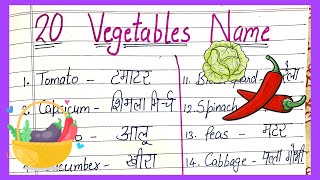 20 Vegetables Name
1. Tomato - टमाटर
Capsicum - शिमला मिर्च
आलू
खीरा
11.
12. Spinach
13. Peas - मटर
14. Cabbage - पत्ता गोभी